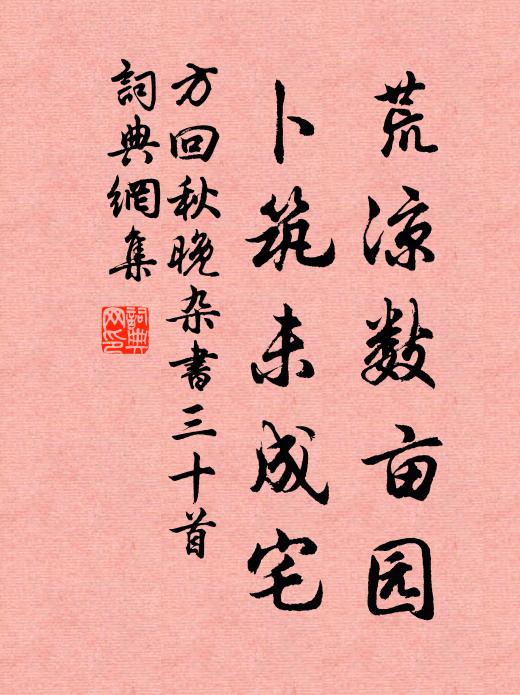 荒凉数亩园
卜筑未成宅
方回秋晚杂书三十首
詞典網集
詞典網印